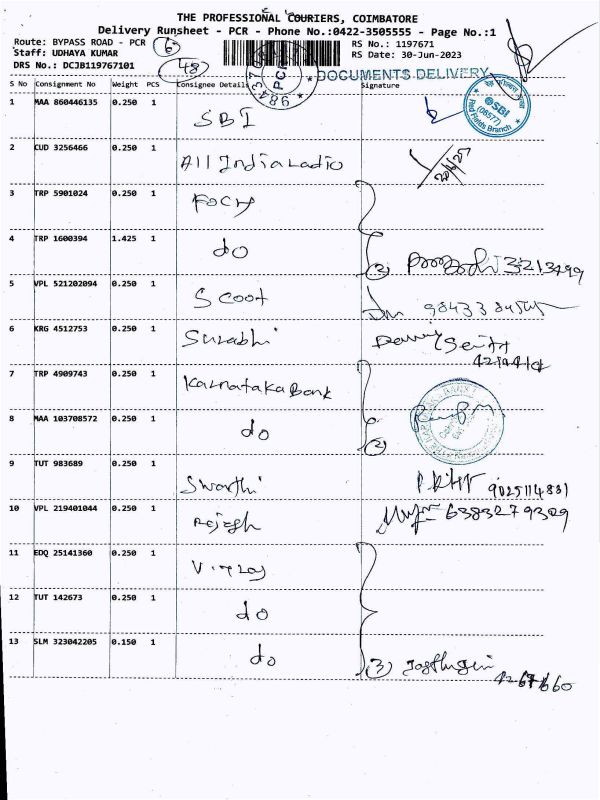 THE PROFESSIONAL COURIERS, COIMBATORE
Delivery Runsheet - PCR - Phone No.:0422-3505555 - Page No.:1
Route: BYPASS ROAD - PCR 6 RS No.: 1197671
Staff: UDHAYA KUMAR RS Date: 30-Jun-2023
DRS No.: DCJB119767101 48 DOCUMENTS DELIVERY
S No Consignment No Weight PCS Consignee Details Signature
1 MAA 860446135 0.250 1 SBI
SBI (08577) Red Fields Branch
2 CUD 3256466 0.250 1 All India Ladio
3 TRP 5901024 0.250 1
4 TRP 1600394 1.425 1 do (2) 3213499
5 VPL 521202094 0.250 1 Scoot
6 KRG 4512753 0.250 1 Surabhi
7 TRP 4909743 0.250 1 Karnataka Bank
8 MAA 103708572 0.250 1 do (2)
9 TUT 983689 0.250 1 Swarthi 9025114831
10 VPL 219401044 0.250 1 Rajesh 6383279309
11 EDQ 25141360 0.250 1
12 TUT 142673 0.250 1 do
13 SLM 323042205 0.150 1 do (3)